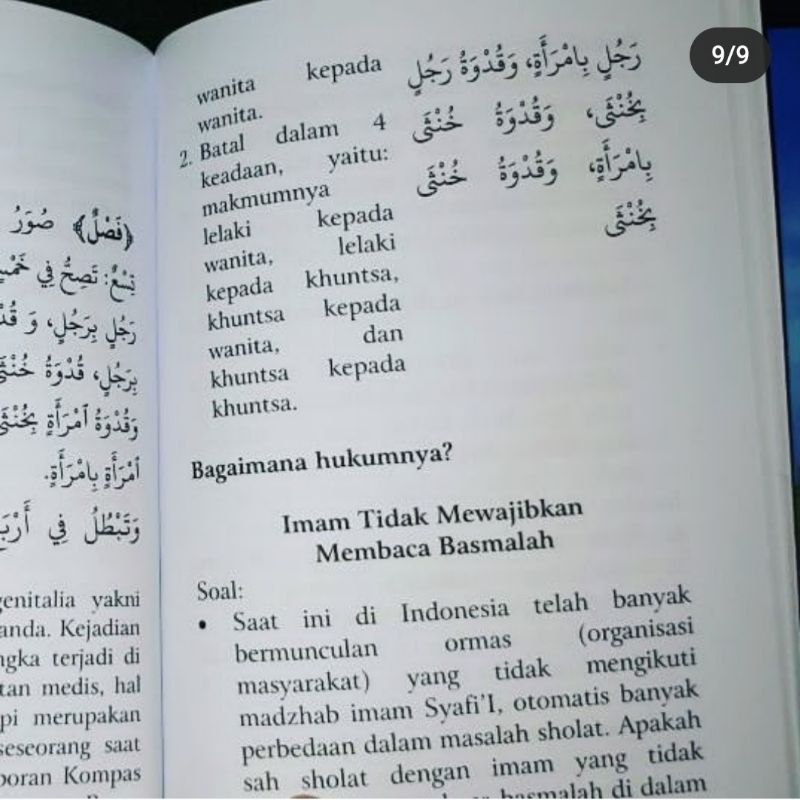 9/9
﴿فَصْلٌ﴾ صُوَرُ
تِسْعٌ: تَصِحُّ فِي
رَجُلٍ بِرَجُلٍ، وَ
بِرَجُلٍ، قُدْوَةُ
وَقُدْوَةُ اَمْرَأَةٍ بِخُنْثَى
اَمْرَأَةٍ بِامْرَأَةٍ.
وَتَبْطُلُ فِي
genitalia yakni
anda. Kejadian
ngka terjadi di
tan medis, hal
pi merupakan
seseorang saat
poran Kompas
wanita kepada
wanita.
2. Batal dalam 4
keadaan, yaitu:
makmumnya
lelaki kepada
wanita, lelaki
kepada khuntsa,
khuntsa kepada
wanita, dan
khuntsa kepada
khuntsa.
رَجُلٍ بِامْرَأَةٍ، وَقُدْوَةُ رَجُلٍ
بِخُنْثَى، وَقُدْوَةُ خُنْثَى
بِامْرَأَةٍ، وَقُدْوَةُ خُنْثَى
بِخُنْثَى
Bagaimana hukumnya?
Imam Tidak Mewajibkan
Membaca Basmalah
Soal:
• Saat ini di Indonesia telah banyak
bermunculan ormas (organisasi
masyarakat) yang tidak mengikuti
madzhab imam Syafi'I, otomatis banyak
perbedaan dalam masalah sholat. Apakah
sah sholat dengan imam yang tidak
basmalah di dalam